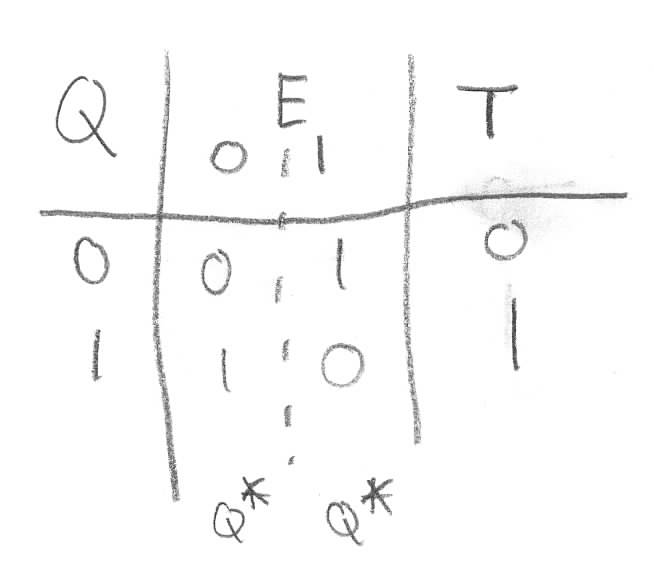 Q E T
0 1
0 0 1 0
1 1 0 1
Q* Q*